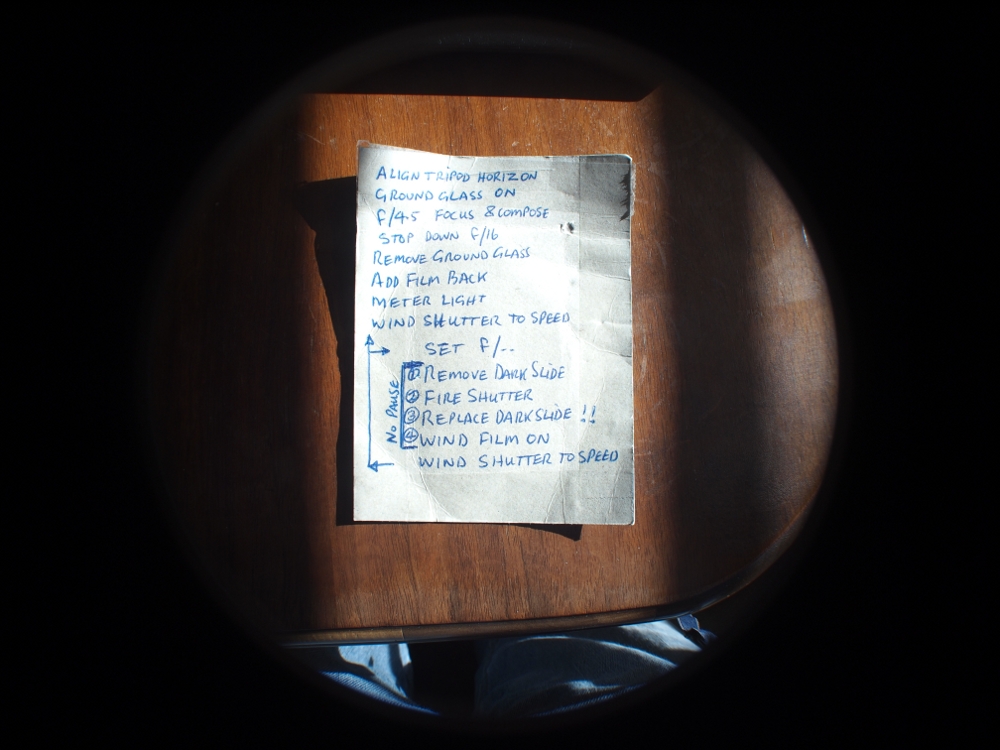 ALIGN TRIPOD HORIZON
GROUND GLASS ON
f/4.5 FOCUS & COMPOSE
STOP DOWN f/16
REMOVE GROUND GLASS
ADD FILM BACK
METER LIGHT
WIND SHUTTER TO SPEED
SET f/--
① REMOVE DARK SLIDE
② FIRE SHUTTER
③ REPLACE DARKSLIDE !!
④ WIND FILM ON
NO PAUSE
WIND SHUTTER TO SPEED